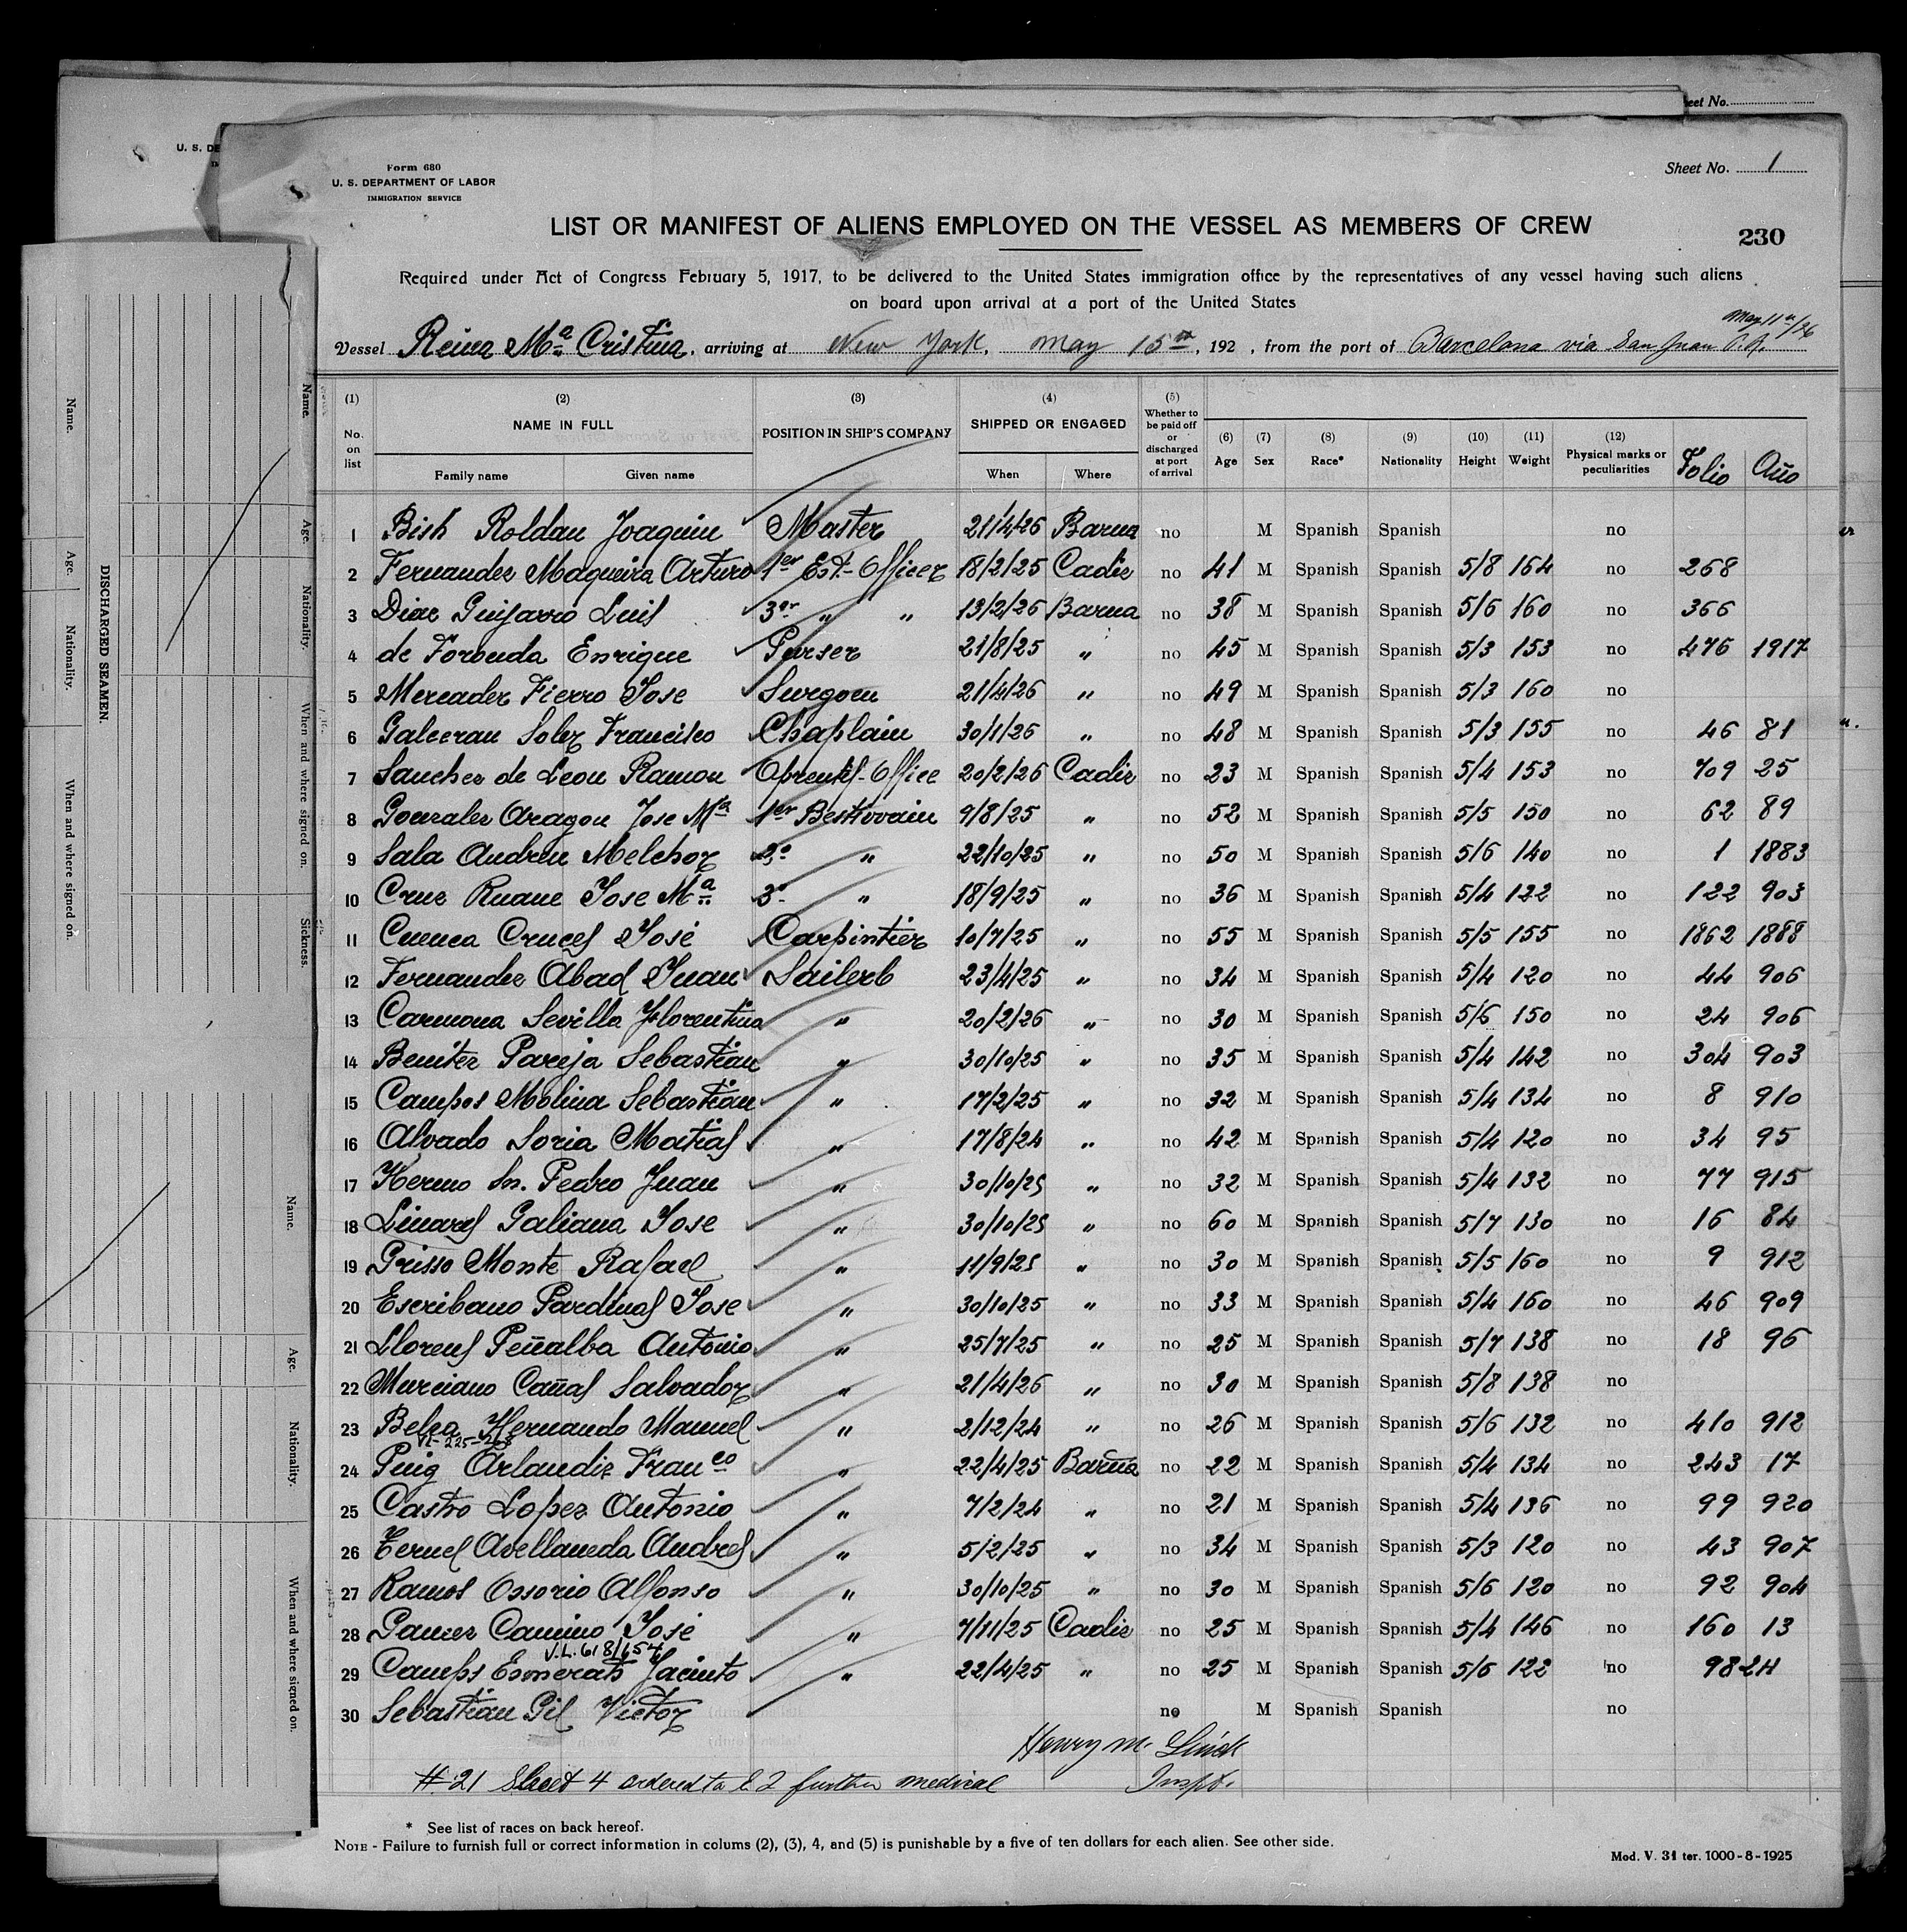 eet No.
U. S. DE
Form 680
U. S. DEPARTMENT OF LABOR
IMMIGRATION SERVICE
Sheet No. 1
LIST OR MANIFEST OF ALIENS EMPLOYED ON THE VESSEL AS MEMBERS OF CREW
230
Required under Act of Congress February 5, 1917, to be delivered to the United States immigration office by the representatives of any vessel having such aliens
on board upon arrival at a port of the United States
May 11th/26
Vessel Reina Ma Cristina, arriving at New York, May 15th, 192 , from the port of Barcelona via San Juan P.R.
(1) (2) (3) (4) (5) (6) (7) (8) (9) (10) (11) (12)
No. on list NAME IN FULL POSITION IN SHIP'S COMPANY SHIPPED OR ENGAGED Whether to be paid off or discharged at port of arrival Age Sex Race* Nationality Height Weight Physical marks or peculiarities Folio Año
Family name Given name When Where
1 Bish Roldan Joaquin Master 21/4/26 Barna no M Spanish Spanish no
2 Fernandez Maqueira Arturo 1er Est.- Officer 18/2/25 Cadiz no 41 M Spanish Spanish 5/8 164 no 268
3 Diaz Guijarro Luis 3er " " 13/2/26 Barna no 38 M Spanish Spanish 5/6 160 no 366
4 de Foronda Enrique Purser 21/8/25 " no 45 M Spanish Spanish 5/3 153 no 476 1917
5 Mercader Fierro Jose Surgoen 21/4/26 " no 49 M Spanish Spanish 5/3 160 no
6 Galceran Soler Francisco Chaplain 30/1/26 " no 48 M Spanish Spanish 5/3 155 no 46 81
7 Sanchez de Leon Ramon Office 20/2/26 Cadiz no 23 M Spanish Spanish 5/4 153 no 709 25
8 Gonzalez Aragon Jose Ma 1er 9/8/25 " no 52 M Spanish Spanish 5/5 150 no 62 89
9 Sala Andreu Melchor 2º " 22/10/25 " no 50 M Spanish Spanish 5/6 140 no 1 1883
10 Cruz Ruane Jose Ma 3º " 18/9/25 " no 36 M Spanish Spanish 5/4 122 no 122 903
11 Cuenca Cruces José Carpintier 10/7/25 " no 55 M Spanish Spanish 5/5 155 no 1862 1888
12 Fernandez Abad Juan Sailerb 23/4/25 " no 34 M Spanish Spanish 5/4 120 no 44 906
13 Carmona Sevilla Florentino " 20/2/26 " no 30 M Spanish Spanish 5/6 150 no 24 906
14 Benitez Pareja Sebastian " 30/10/25 " no 35 M Spanish Spanish 5/4 142 no 304 903
15 Campos Molina Sebastian " 17/2/25 " no 32 M Spanish Spanish 5/4 134 no 8 910
16 Alvado Soria Matias " 17/8/24 " no 42 M Spanish Spanish 5/4 120 no 34 95
17 Hermo Sn. Pedro Juan " 30/10/25 " no 32 M Spanish Spanish 5/4 132 no 77 915
18 Linares Galiana Jose " 30/10/25 " no 60 M Spanish Spanish 5/7 130 no 16 84
19 Grisso Monte Rafael " 11/9/25 " no 30 M Spanish Spanish 5/5 160 no 9 912
20 Escribano Pardinas Jose " 30/10/25 " no 33 M Spanish Spanish 5/4 160 no 46 909
21 Llorens Peñalba Antonio " 25/7/25 " no 25 M Spanish Spanish 5/7 138 no 18 96
22 Murciano Cañas Salvador " 21/4/26 " no 30 M Spanish Spanish 5/8 138 no
23 Belza Hernando Manuel " 2/12/24 " no 26 M Spanish Spanish 5/6 132 no 410 912
24 Puig Arlandiz Franco " 22/4/25 Barna no 22 M Spanish Spanish 5/4 134 no 243 17
25 Castro Lopez Antonio " 7/2/24 " no 21 M Spanish Spanish 5/4 136 no 99 920
26 Teruel Avellaneda Andres " 5/2/25 " no 34 M Spanish Spanish 5/3 120 no 43 907
27 Ramos Ossorio Alfonso " 30/10/25 " no 30 M Spanish Spanish 5/6 120 no 92 904
28 Gamez Camino José " 7/11/25 Cadiz no 25 M Spanish Spanish 5/4 146 no 160 13
V.L. 618/654
29 Camps Esmerats Jacinto " 22/4/25 " no 25 M Spanish Spanish 5/6 122 no 98 24
30 Sebastian Gil Victor no M Spanish Spanish no
Henry M. Linck
#21 Sheet 4 ordered to E I further medical Inspt.
* See list of races on back hereof.
NOTE - Failure to furnish full or correct information in colums (2), (3), 4, and (5) is punishable by a five of ten dollars for each alien. See other side.
Mod. V. 31 ter. 1000-8-1925
DISCHARGED SEAMEN.
Name.
Age.
Nationality.
When and where signed on.
Name.
Age.
Nationality.
When and where signed on.
Sickness.
Name.
Age.
Nationality.
When and where signed on.